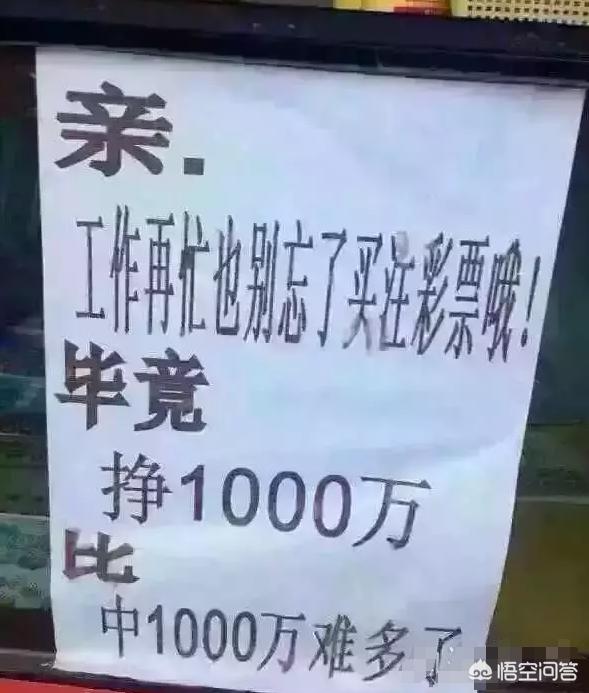 亲.
工作再忙也别忘了买注彩票哦!
毕竟
挣1000万
比
中1000万难多了
悟空问答